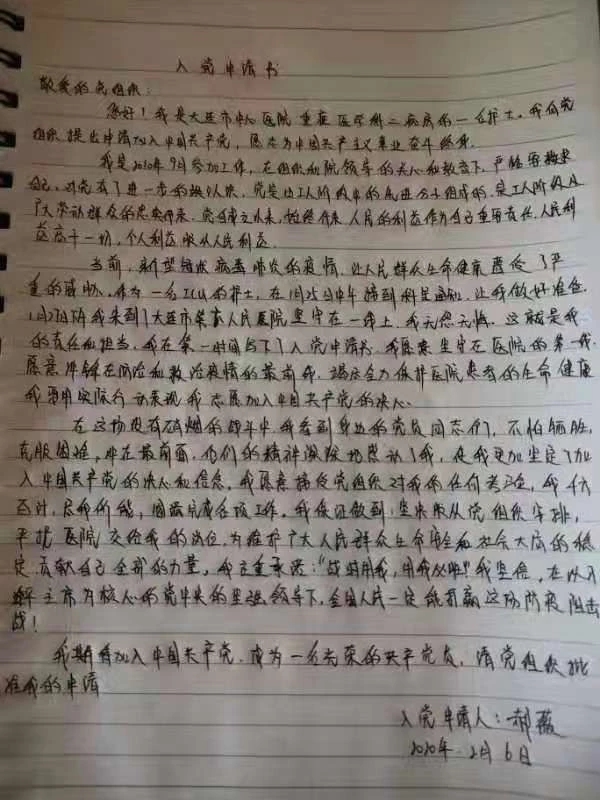 入党申请书
敬爱的党组织:
您好!我是大连市中心医院重症医学科二病房的一名护士。我向党
组织提出申请加入中国共产党,愿意为中国共产主义事业奋斗终身。
我是2010年9月参加工作,在组织和院领导的关心和教育下,严格要求
自己,对党有了进一步的认识,党是由工人阶级中的先进分子组成的,是工人阶级及
广大劳动群众的忠实代表,党自成立以来,始终代表人民的利益作为自己重要责任,人民利
益高于一切,个人利益服从人民利益。
当前,新型冠状病毒肺炎的疫情,让人民群众生命健康遭受了严
重的威胁,作为一名ICU的护士,在1月25日中午接到科里通知,让我做好准备,
1月27日我来到了大连市第六人民医院坚守在一线上,我无怨无悔。这就是我
的责任和担当,我在第一时间写下了入党申请书,我愿意坚守在医院的第一线,
愿意冲锋在防治和救治疫情的最前线,竭尽全力保护医院患者的生命健康
我要用实际行动表现我志愿加入中国共产党的决心。
在这场没有硝烟的战斗中我看到身边的党员同志们,不怕牺牲,
克服困难,冲在最前面,他们的精神激励感动了我,使我更加坚定了加
入中国共产党的决心和信念,我愿意接受党组织对我的任何考验,我千方
百计,尽我所能,圆满完成各项工作。我保证做到:坚决服从党组织安排,
平抚医院交给我的岗位,为维护广大人民群众生命安全和社会大局的稳
定贡献自己全部的力量,我郑重承诺:“战时用我,用我必胜”我坚信,在以习
主席为核心的党中央的坚强领导下,全国人民一定能打赢这场防疫阻击
战!
我期待加入中国共产党,成为一名光荣的共产党员,请党组织批
准我的申请
入党申请人:郝薇
2020年2月6日